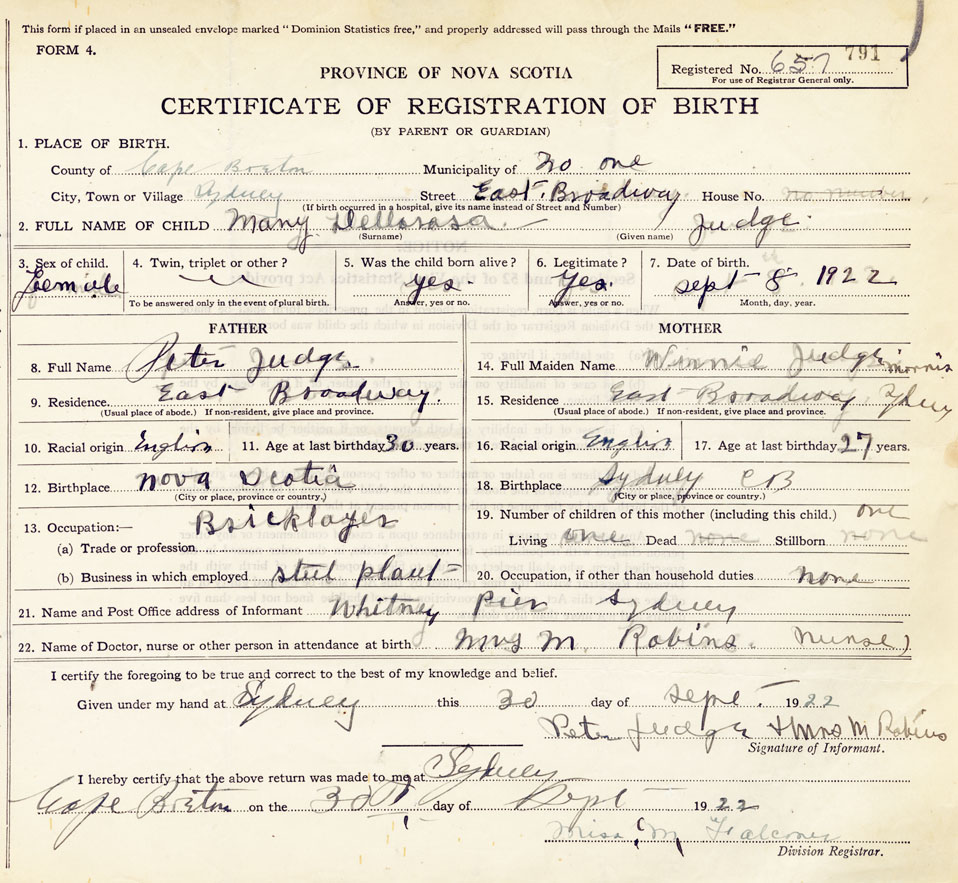 This form if placed in an unsealed envelope marked "Dominion Statistics free," and properly addressed will pass through the Mails "FREE."
FORM 4.
791
Registered No. 657
For use of Registrar General only.
PROVINCE OF NOVA SCOTIA
CERTIFICATE OF REGISTRATION OF BIRTH
(BY PARENT OR GUARDIAN)
1. PLACE OF BIRTH.
County of Cape Breton Municipality of No one
City, Town or Village Sydney Street East Broadway House No. no number
(If birth occurred in a hospital, give its name instead of Street and Number)
2. FULL NAME OF CHILD Mary Dellorasa Judge
(Surname) (Given name)
3. Sex of child. 4. Twin, triplet or other? 5. Was the child born alive? 6. Legitimate? 7. Date of birth.
Female yes. Yes. sept 8 1922
To be answered only in the event of plural birth. Answer, yes or no. Answer, yes or no. Month, day, year.
FATHER MOTHER
8. Full Name Peter Judge 14. Full Maiden Name Winnie Judge morris
9. Residence. East Broadway. 15. Residence East Broadway Sydney
(Usual place of abode.) If non-resident, give place and province. (Usual place of abode.) If non-resident, give place and province.
10. Racial origin English 11. Age at last birthday 30 years. 16. Racial origin English 17. Age at last birthday 27 years.
12. Birthplace nova Scotia 18. Birthplace Sydney CB
(City or place, province or country.) (City or place, province or country.)
13. Occupation:— Bricklayer 19. Number of children of this mother (including this child.) one
(a) Trade or profession Living one Dead none Stillborn none
(b) Business in which employed steel plant 20. Occupation, if other than household duties none
21. Name and Post Office address of Informant Whitney Pier Sydney
22. Name of Doctor, nurse or other person in attendance at birth Mrs M. Robins. Nurse)
I certify the foregoing to be true and correct to the best of my knowledge and belief.
Given under my hand at Sydney this 30 day of sept. 1922
Peter Judge & Mrs M Robins
Signature of Informant.
I hereby certify that the above return was made to me at Sydney
Cape Breton on the 30th day of Sept 1922
Miss M Falconer
Division Registrar.